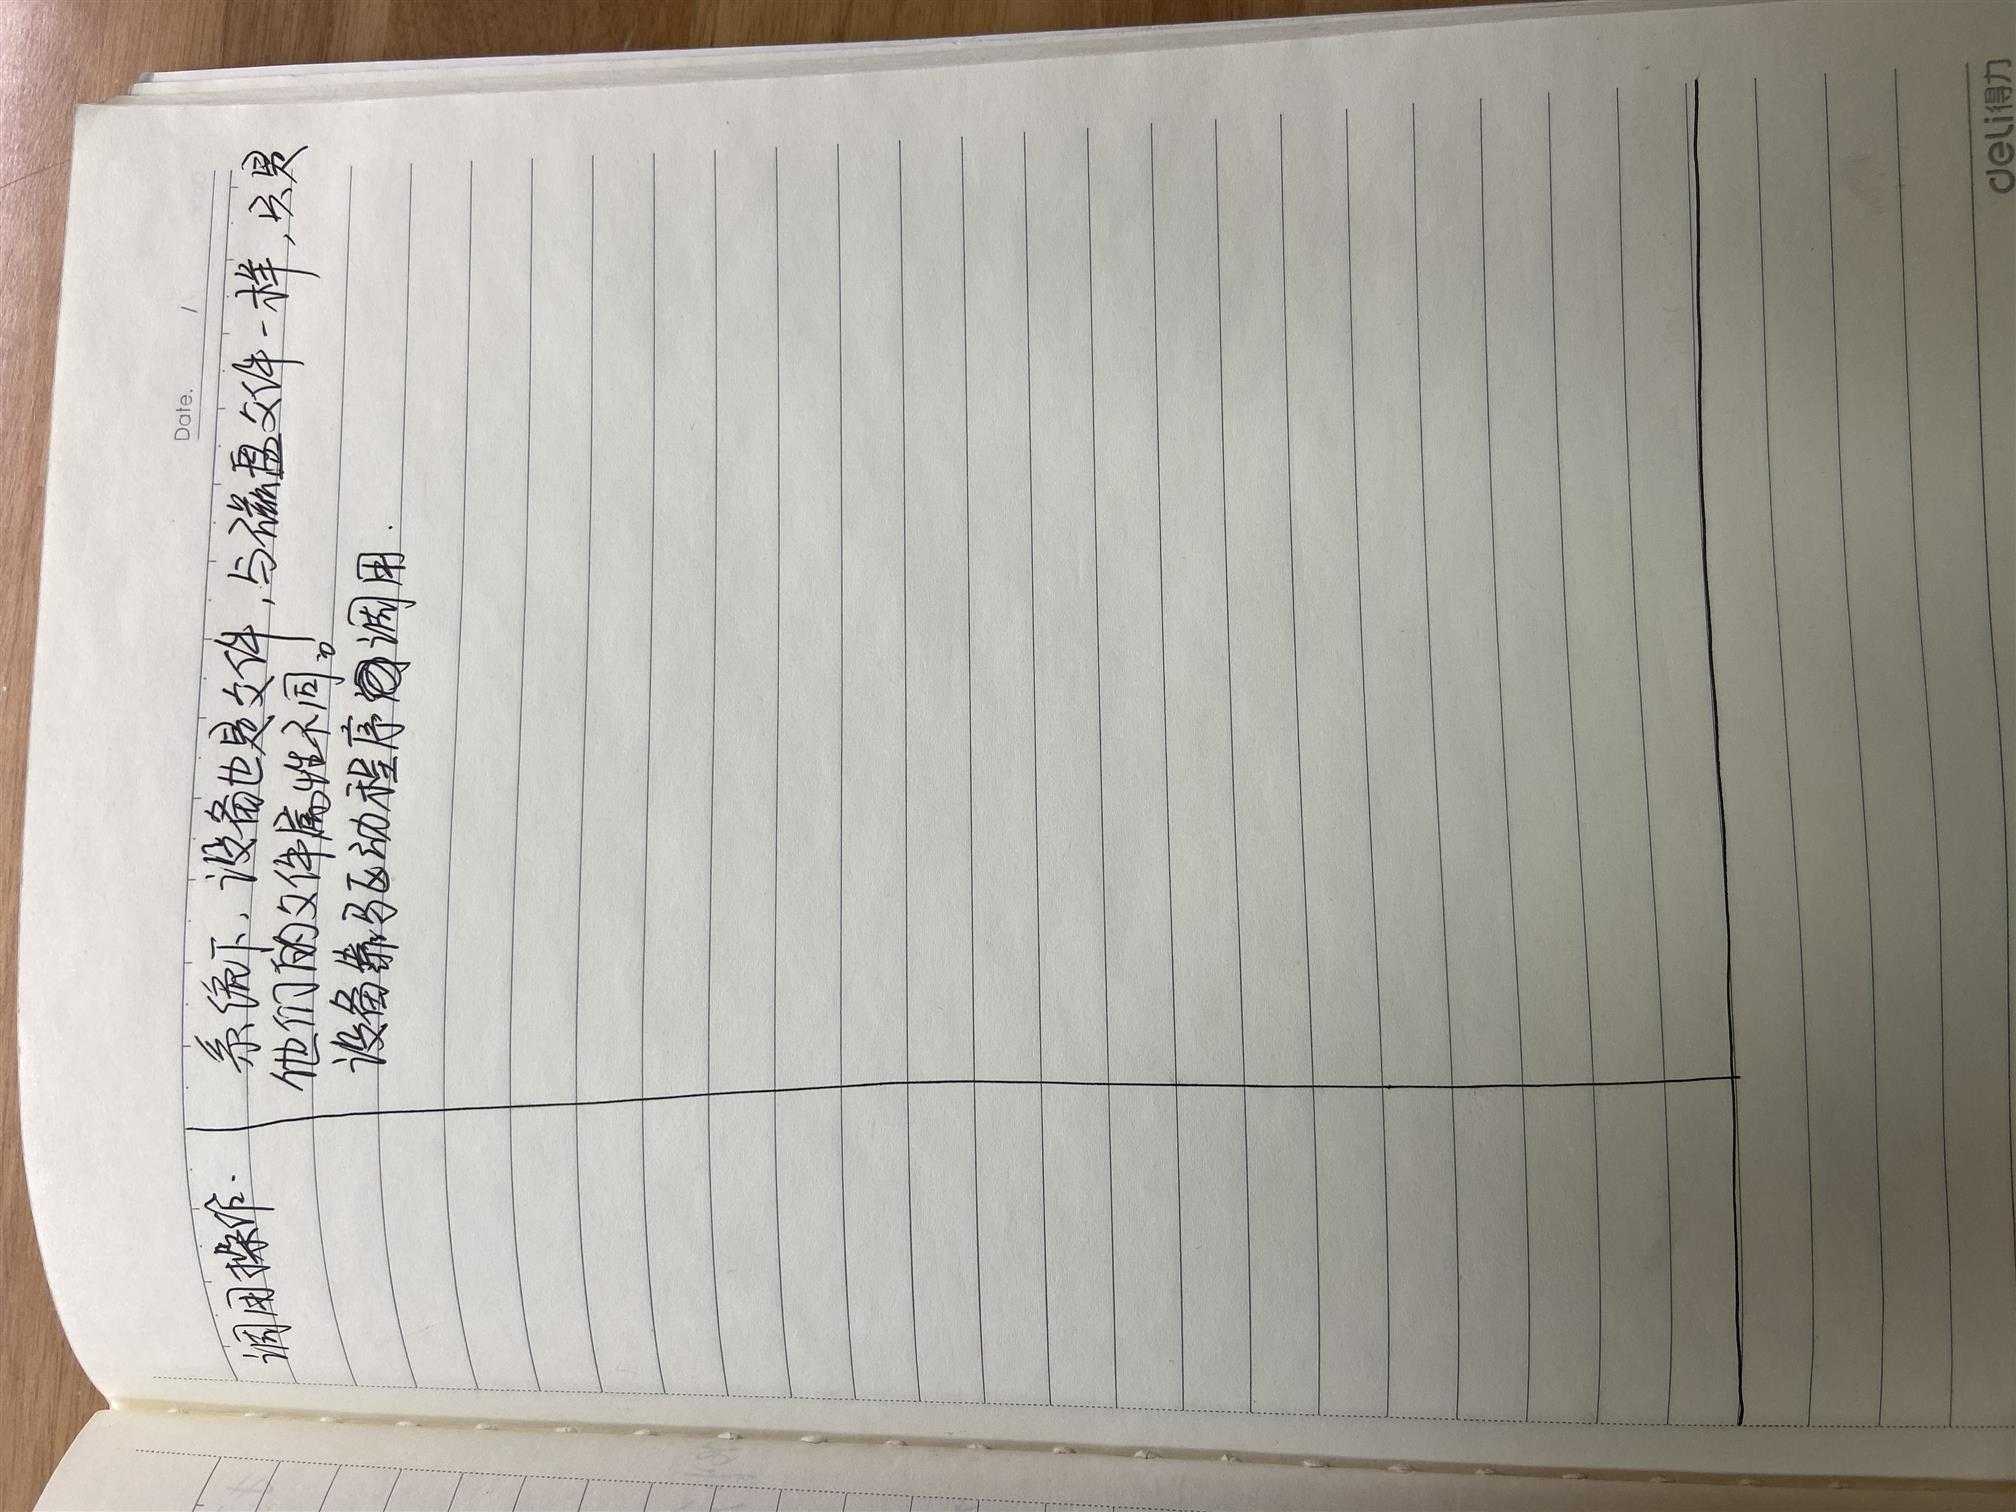 Date. /
调用操作.
系统下，设备也是文件，与磁盘文件一样，只是
他们的文件属性不同。
设备靠驱动程序调用.
deli得力